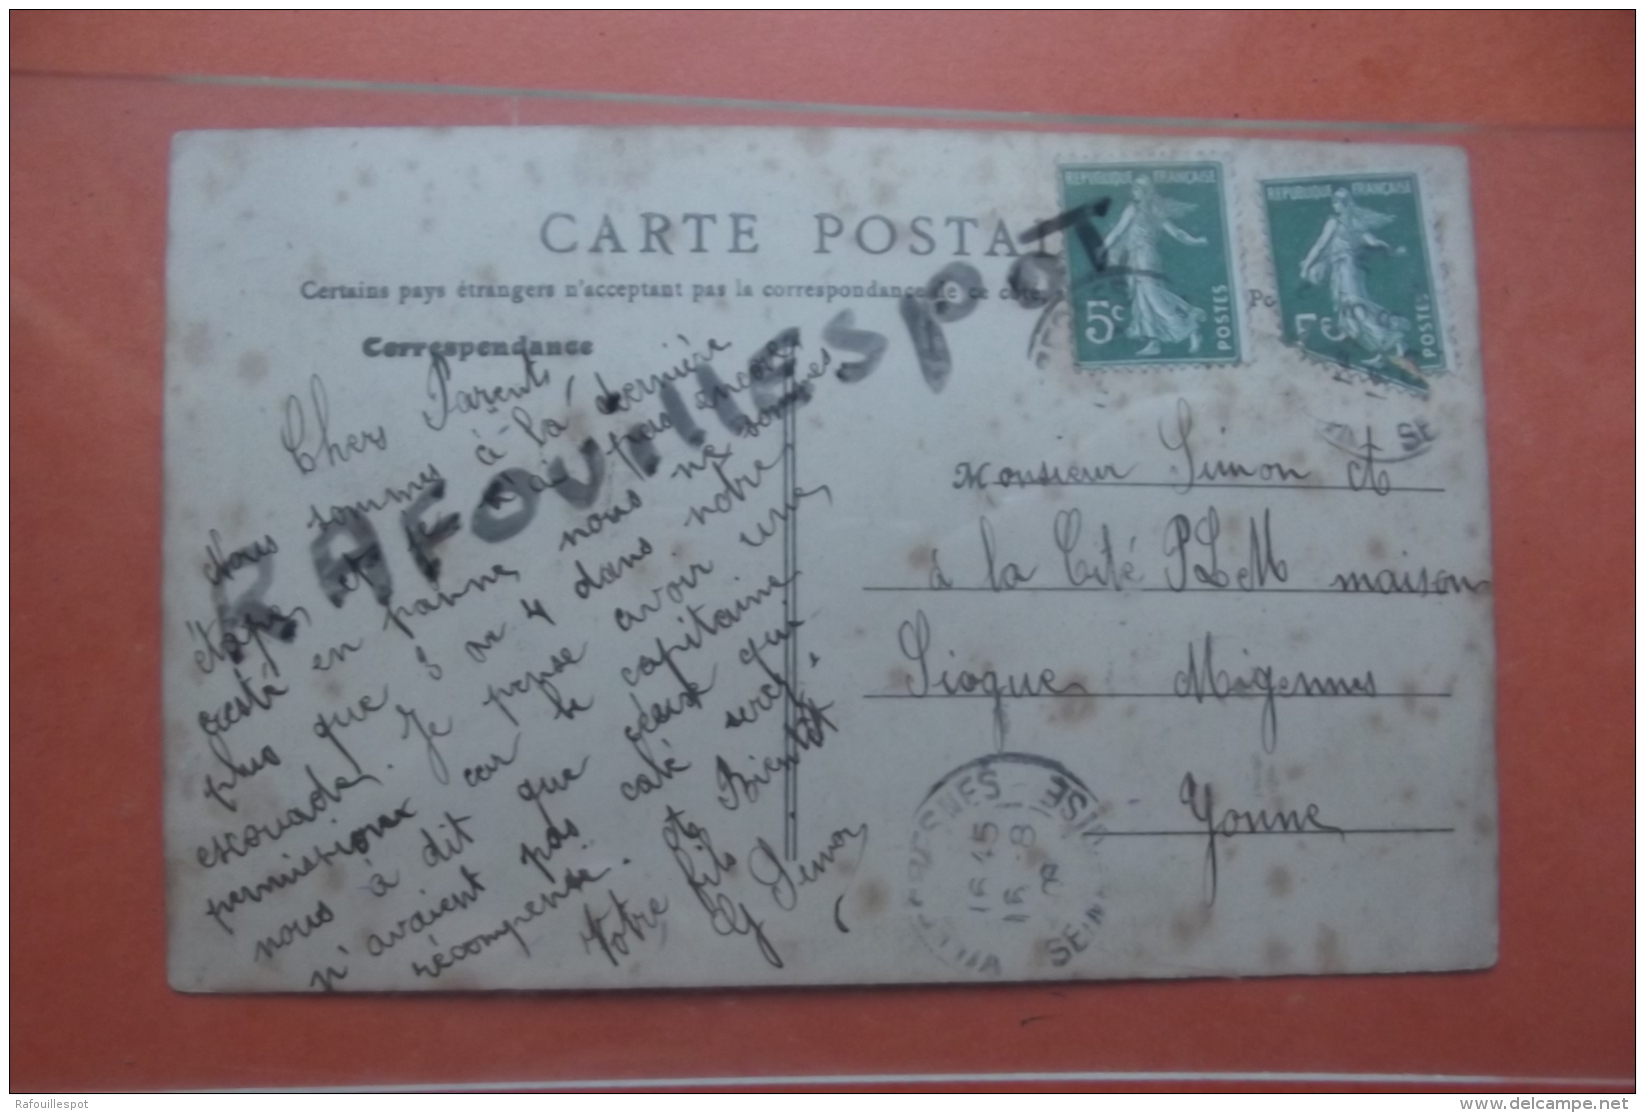 CARTE POSTAL
Certains pays étrangers n'acceptent pas la correspondance de ce côté.
Correspondance
RAFOUILLESPOT
REPUBLIQUE FRANÇAISE
5c
POSTES
REPUBLIQUE FRANÇAISE
5c
POSTES
Chers Parents
Nous sommes à la dernière
étape, et je n'ai pas encore
resté en panne, nous ne sommes
plus que 3 ou 4 dans notre
escouade. Je pense avoir une
permission car le capitaine
nous à dit que ceux qui
n'avaient pas calé serai
récompense. et Bientôt
Votre fils
G Simon
Monsieur Simon A
à la Cité PLM maison
Migennes
Yonne
16 45
16 - 8
SEINE
Rafouillespot
delcampe.net